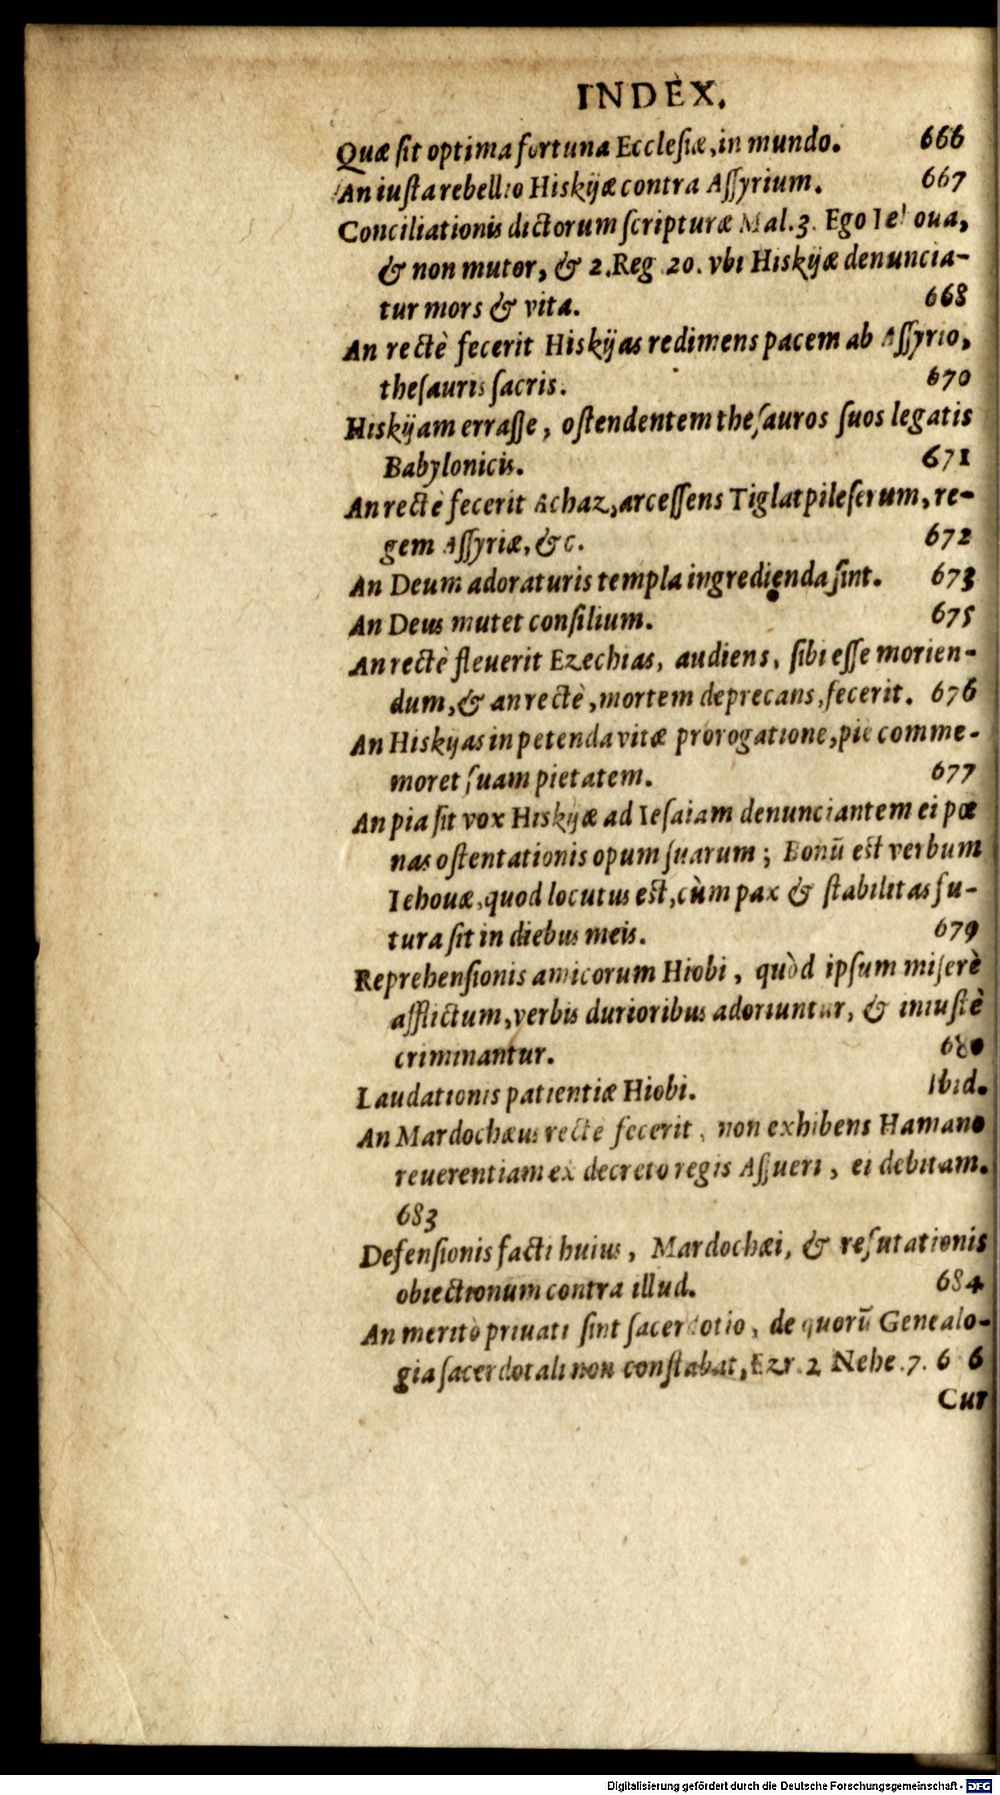 INDEX.
Quæ ſit optima fortuna Eccleſiæ, in mundo. 666
An iuſta rebellio Hiskijæ contra Aſſyrium. 667
Conciliationis dictorum ſcripturæ Mal. 3. Ego Iehoua,
& non mutor, & 2. Reg. 20. vbi Hiskijæ denuncia-
tur mors & vita. 668
An rectè fecerit Hiskijas redimens pacem ab Aſſyrio,
theſauris ſacris. 670
Hiskijam erraſſe, oſtendentem theſauros ſuos legatis
Babylonicis. 671
An rectè fecerit Achaz, arceſſens Tiglatpileſerum, re-
gem Aſſyriæ, &c. 672
An Deum adoraturis templa ingredienda ſint. 673
An Deus mutet conſilium. 675
An rectè fleuerit Ezechias, audiens, ſibi eſſe morien-
dum, & an rectè, mortem deprecans, fecerit. 676
An Hiskijas in petenda vitæ prorogatione, piè comme-
moret ſuam pietatem. 677
An pia ſit vox Hiskijæ ad Ieſaiam denunciantem ei pœ
nas oſtentationis opum ſuarum; Bonū eſt verbum
Iehouæ, quod locutus eſt, cùm pax & ſtabilitas fu-
tura ſit in diebus meis. 679
Reprehenſionis amicorum Hiobi, quòd ipſum miſerè
afflictum, verbis durioribus adoriuntur, & iniuſtè
criminantur. 680
Laudationis patientiæ Hiobi. Ibid.
An Mardochæus rectè fecerit, non exhibens Hamano
reuerentiam ex decreto regis Aſſueri, ei debitam.
683
Defenſionis facti huius, Mardochæi, & refutationis
obiectionum contra illud. 684
An meritò priuati ſint ſacerdotio, de quorū Genealo-
gia ſacerdotali non conſtabat, Ezr. 2 Nehe. 7. 6 6
Cur
Digitalisierung gefördert durch die Deutsche Forschungsgemeinschaft - DFG